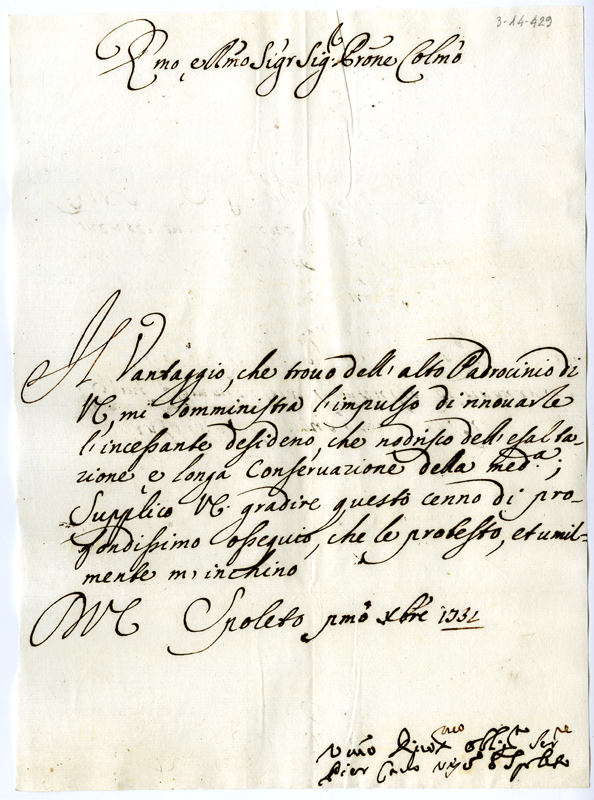 3-14-429
Emo, e Rmo Sigr Sig.r Prone Colmo
Il Vantaggio, che trovo dell'alto Padrocinio di
VE, mi somministra l'impulso di rinovarle
l'incessante desiderio, che nodrisco dell'esalta-
zione, e longa Conservazione della med.a;
Supplico VE. gradire questo cenno di pro-
fondissimo ossequio, che le protesto, et umil-
mente m'inchino
DVE Spoleto pmo Xbre 1731
Vmo Divot.mo obblig.to Ser.re
Pier Carlo Vesc.o di Spoleto